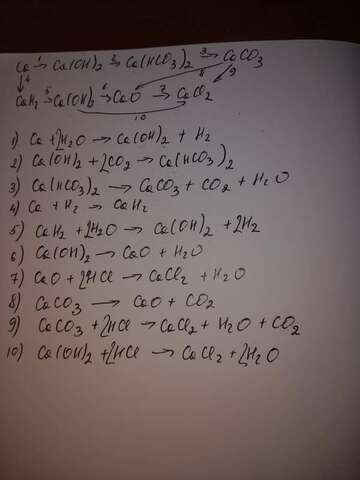 Ca 1→ Ca(OH)2 2→ Ca(HCO3)2 3→ CaCO3
↓4 8 9
CaH2 5→ Ca(OH)2 6→ CaO 7→ CaCl2
10
1) Ca + 2H2O → Ca(OH)2 + H2
2) Ca(OH)2 + 2CO2 → Ca(HCO3)2
3) Ca(HCO3)2 → CaCO3 + CO2 + H2O
4) Ca + H2 → CaH2
5) CaH2 + 2H2O → Ca(OH)2 + 2H2
6) Ca(OH)2 → CaO + H2O
7) CaO + 2HCl → CaCl2 + H2O
8) CaCO3 → CaO + CO2
9) CaCO3 + 2HCl → CaCl2 + H2O + CO2
10) Ca(OH)2 + 2HCl → CaCl2 + 2H2O